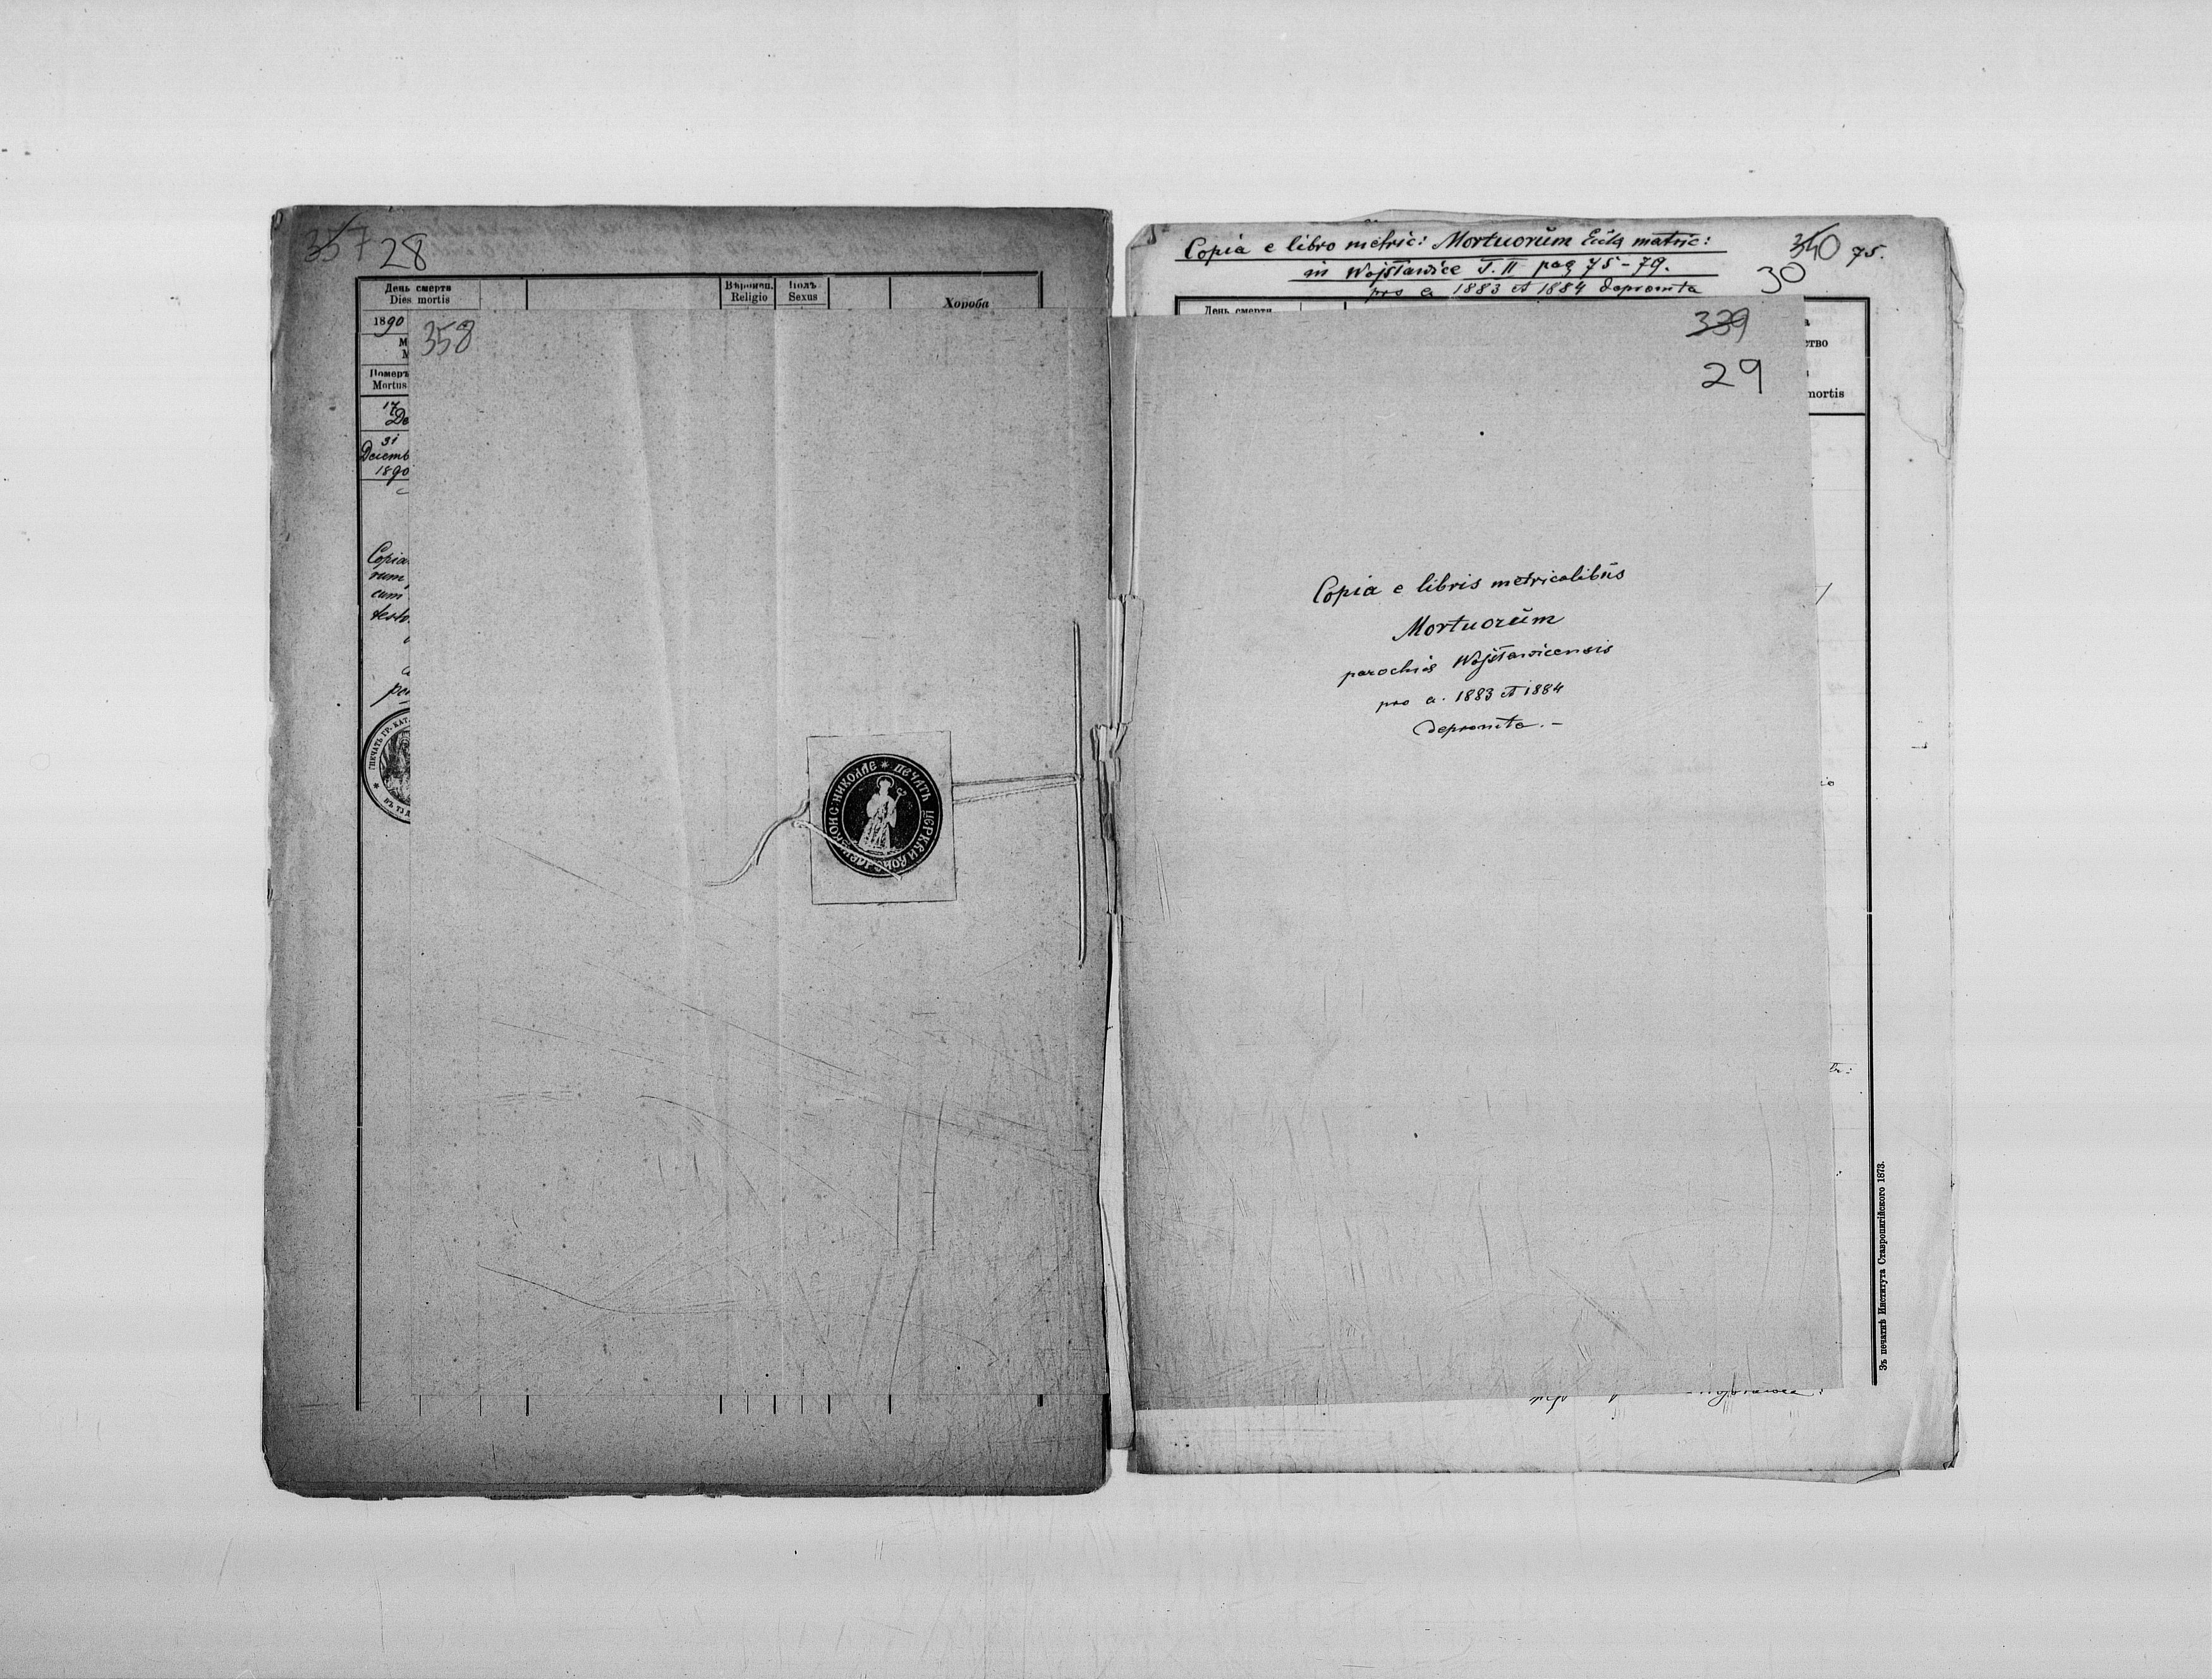 357 28
День смерти
Dies mortis
Вѣроисп.
Religio
Полъ
Sexus
Хороба
1890
358
М
М
Померъ
Mortus
17
De
31
Decemb
1890
Copia
rum
cum
testo
per
ПЕЧАТЬ ГР. КАТ.
ПЕЧАТЬ ЦЕРКВИ
НИКОЛАЕ
Copia e libro metric: Mortuorŭm Eccla matric:
in Wojsławice T. II pag 75-79.
pro a 1883 et 1884 depromta
340 75.
30
День смерти
339
29
а
ство
mortis
Copia e libris metricalibŭs
Mortuorŭm
parochiæ Wojsławicensis
pro a. 1883 et 1884
depromta. -
Зъ печатнѣ Института Ставропигійского 1873.